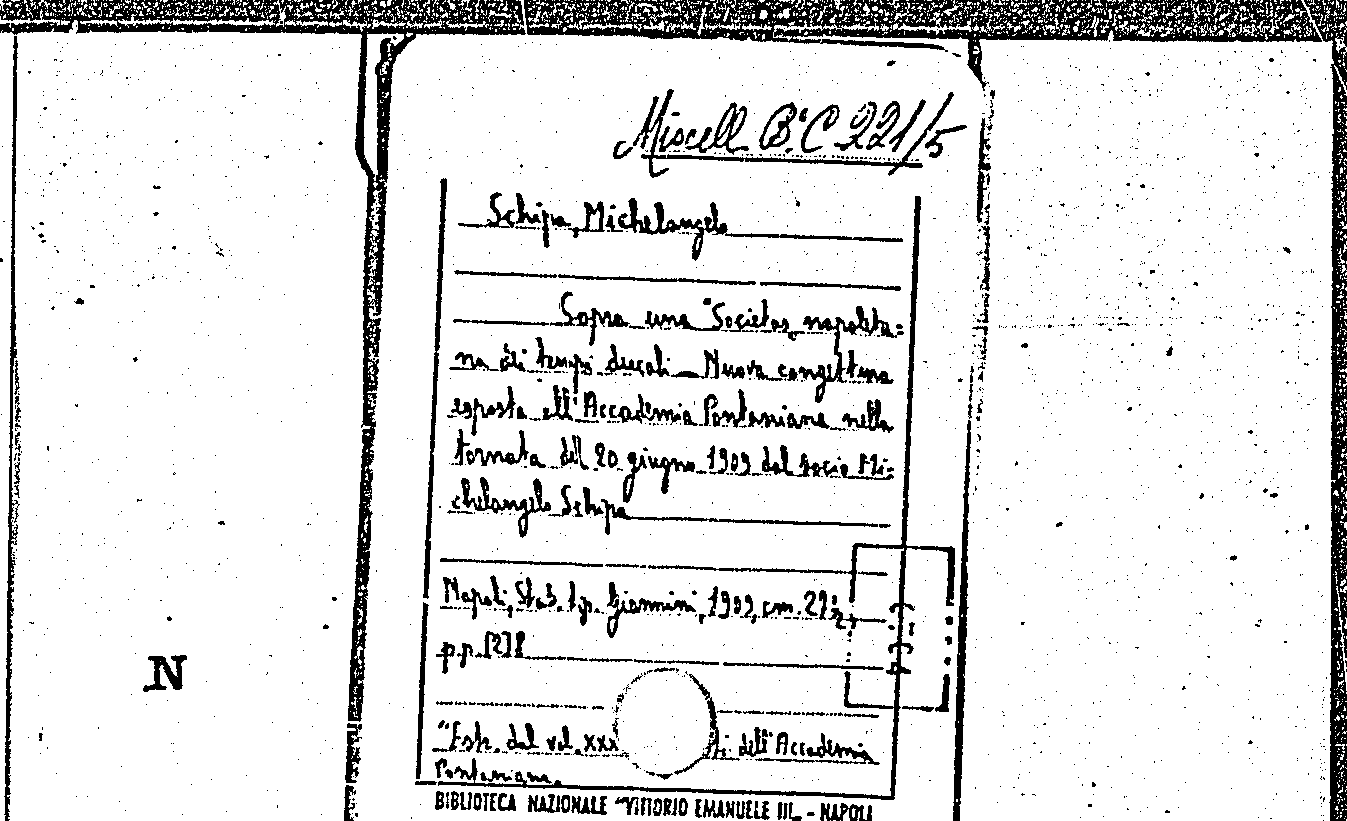 Miscell. B.C 221/5
Schipa, Michelangelo
Sopra una "Societas" napoleta=
na di tempi ducali – Nuova congettura
esposta all'Accademia Pontaniana nella
tornata del 20 giugno 1909 dal socio Mi=
chelangelo Schipa
Napoli, Stab. tip. Giannini, 1909, cm.
p.p. [2] 8
N
"Estr. dal vol. XXX dell'Accademia
Pontaniana.
BIBLIOTECA NAZIONALE "VITTORIO EMANUELE III„ - NAPOLI